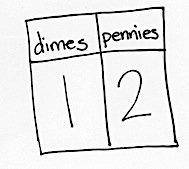 dimes pennies
1 2